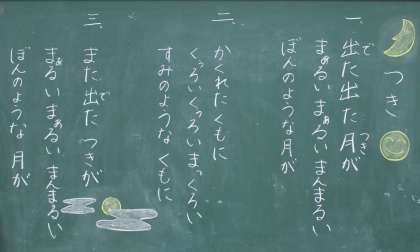 つき
一、出た出た月が
まぁるいまぁるいまんまるい
ぼんのような月が
二、
かくれたくもに
くぅろいくぅろいまっくろい
すみのようなくもに
三、また出たつきが
まぁるいまぁるいまんまるい
ぼんのような月が